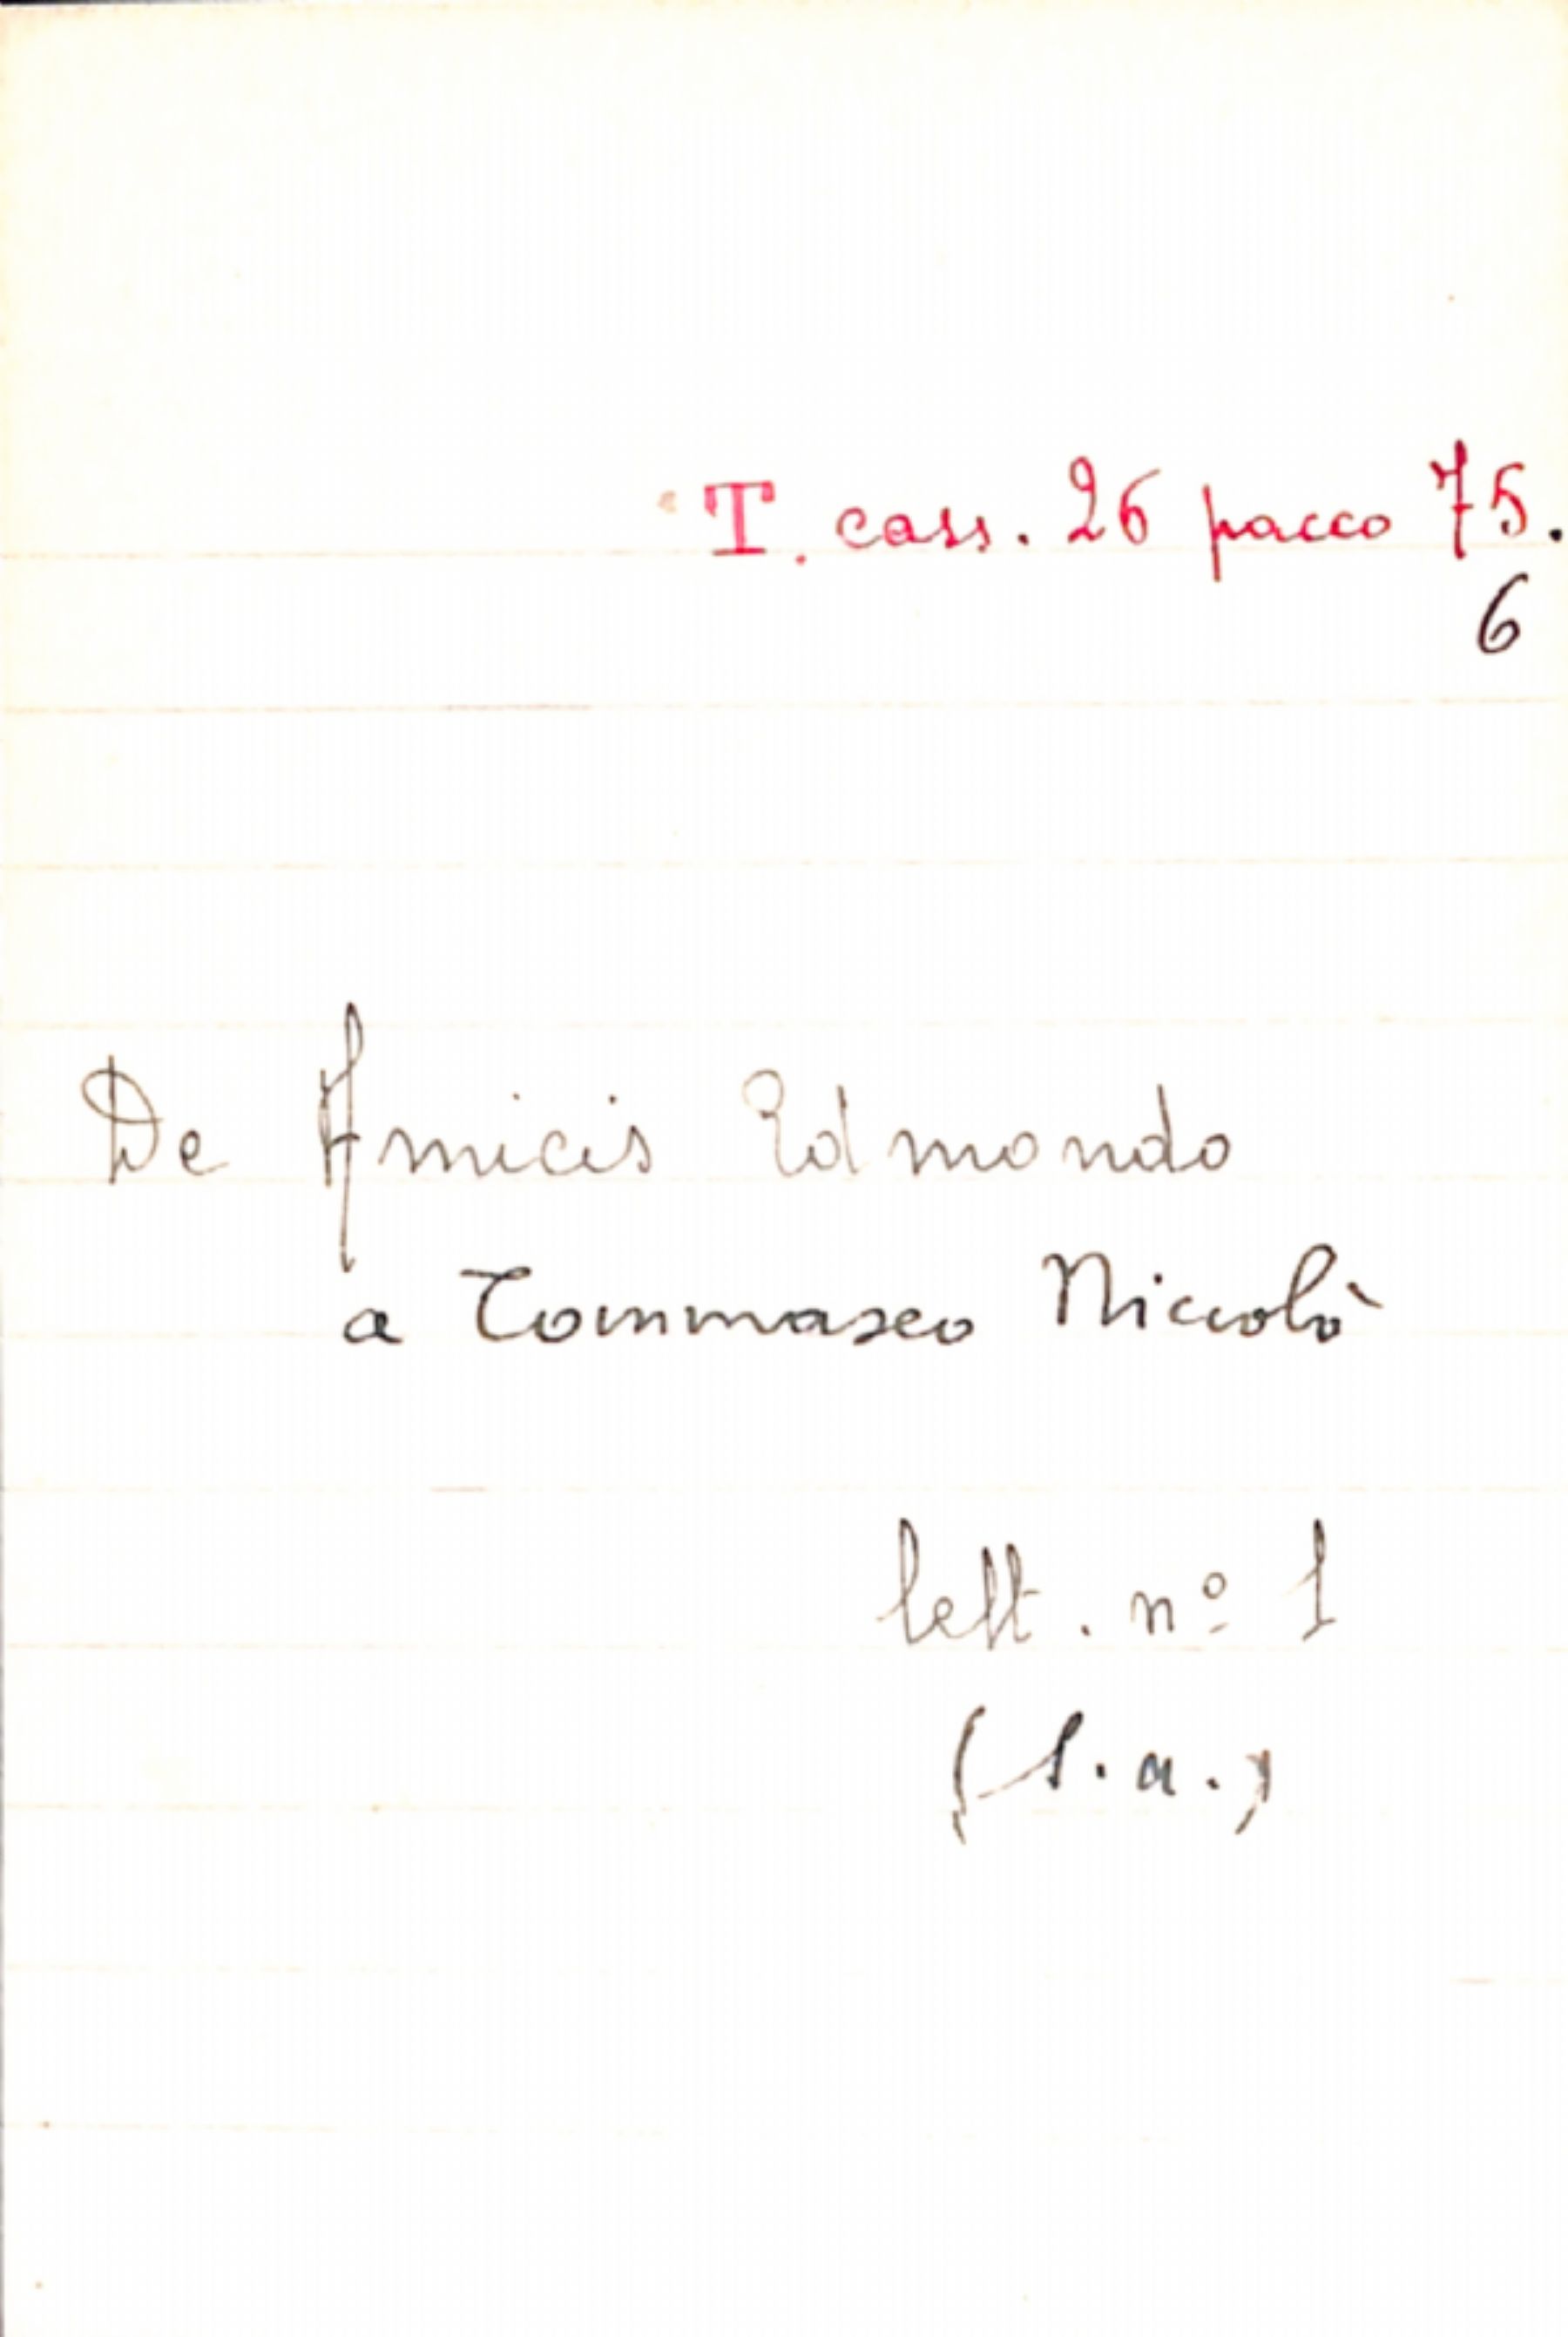 T. cass. 26 pacco 75.
6
De Amicis Edmondo
a Tommaseo Niccolò
lett. nº 1
(s.a.)